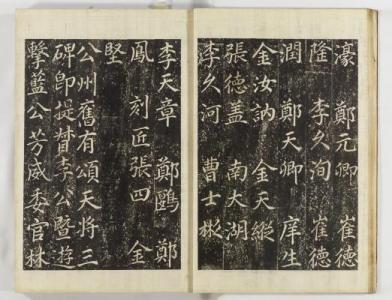 濠 鄭元卿 崔德
隆 李久洵 崔德
潤 鄭天卿 庠生
金汝訥 金天縱
張德蓋 南大湖
李久河 曹士
李天章 鄭鷗 鄭
鳳 刻匠張四 金
堅
公州舊有頌天將三
碑卽提督李公曁遊
擊藍公芳威委官林